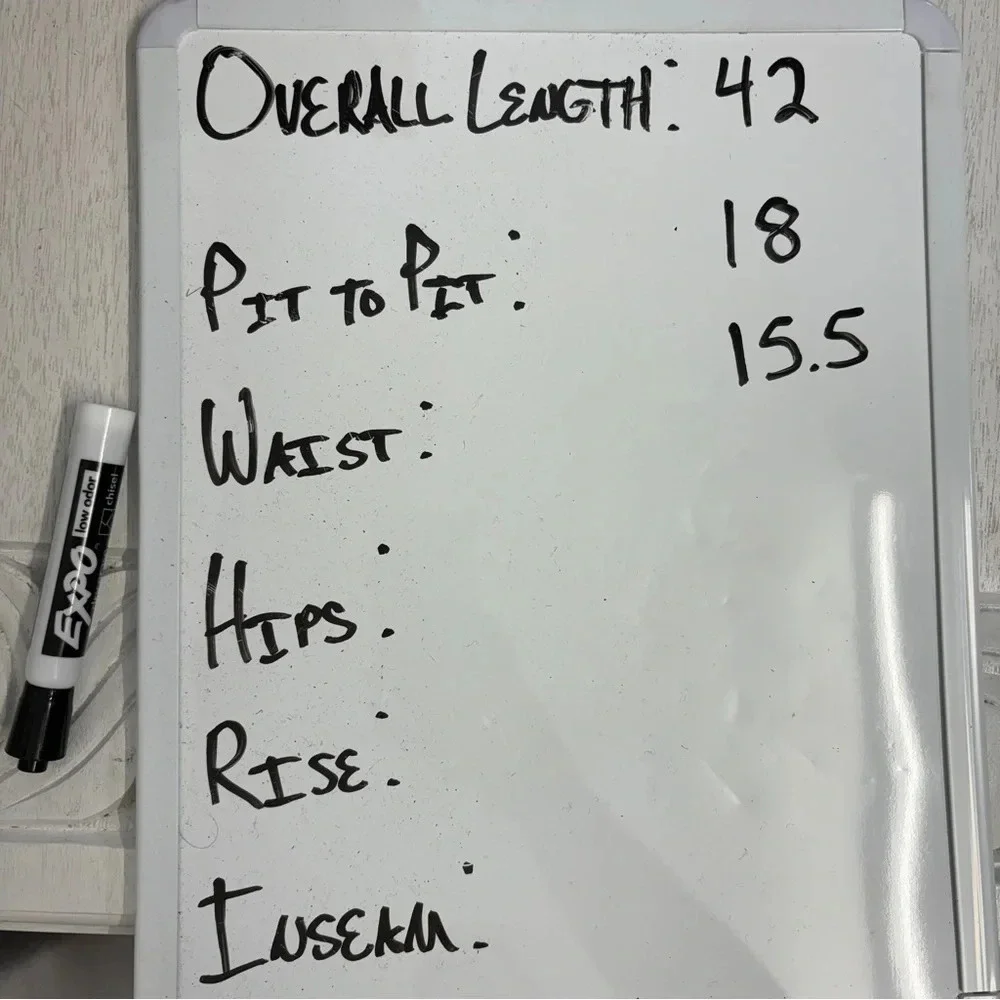 OVERALL LENGTH: 42
18
PIT TO PIT:
15.5
WAIST:
HIPS:
RISE:
INSEAM:
EXPO low odor
chisel